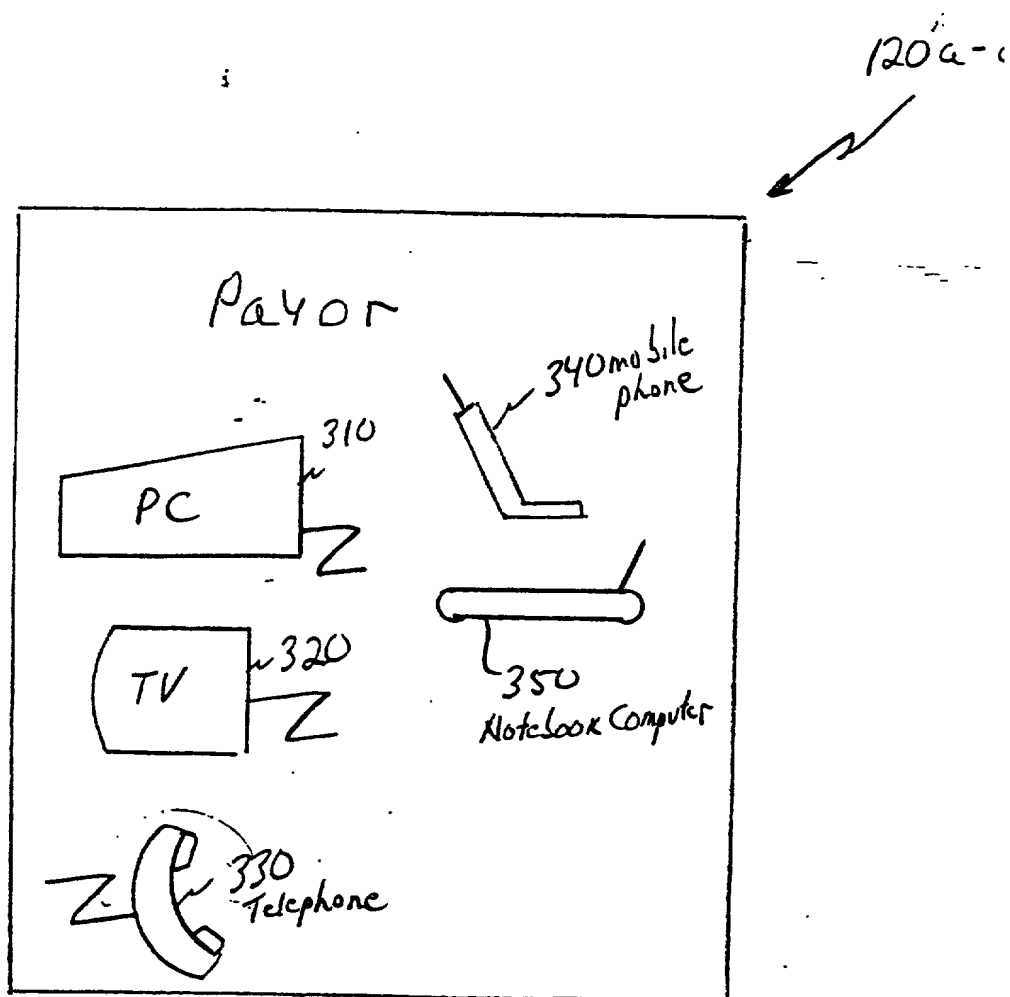 120a-
Payor
310
PC
340 mobile
phone
320
TV
350
Notebook Computer
330
Telephone